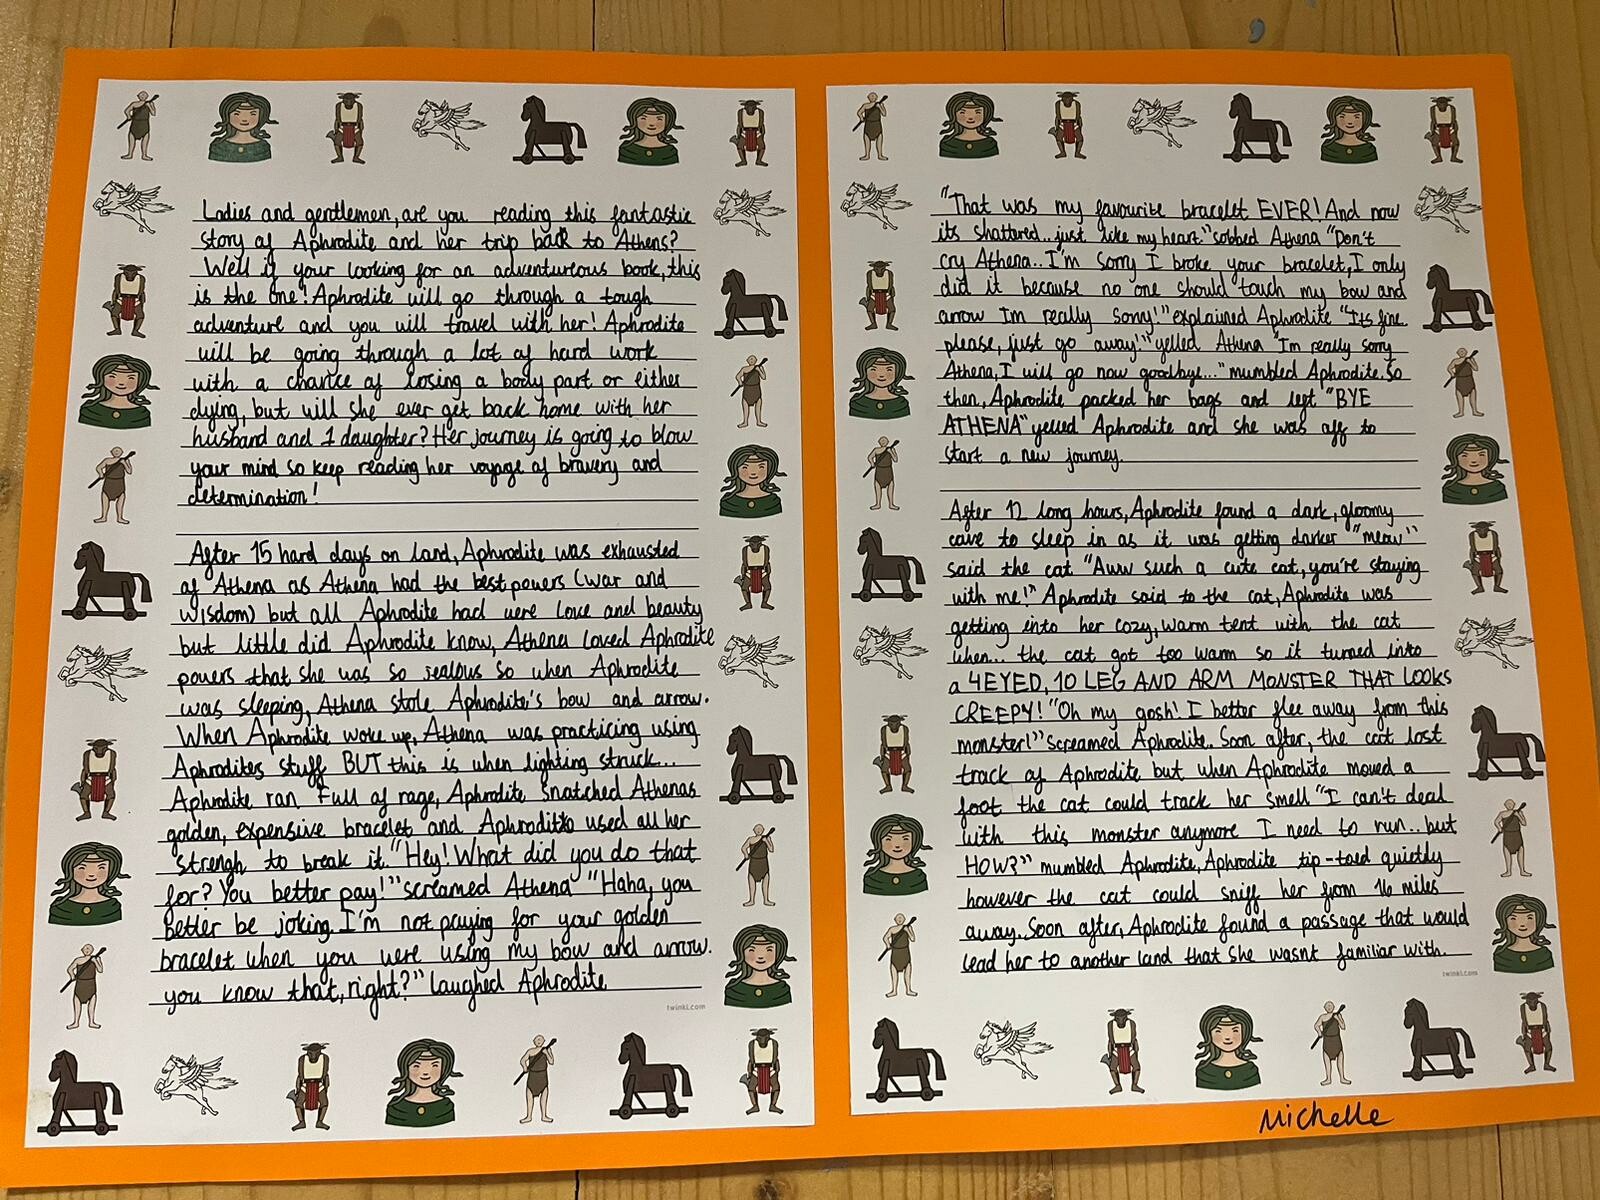 Ladies and gentlemen, are you reading this fantastic
story of Aphrodite and her trip back to Athens?
Well if your looking for an adventureous book, this
is the one! Aphrodite will go through a tough
adventure and you will travel with her! Aphrodite
will be going through a lot of hard work
with a chance of losing a body part or either
dying, but will she ever get back home with her
husband and 1 daughter? Her journey is going to blow
your mind so keep reading her voyage of bravery and
determination!
After 15 hard days on land, Aphrodite was exhausted
of Athena as Athena had the best powers (war and
wisdom) but all Aphrodite had were love and beauty
but little did Aphrodite know, Athena loved Aphrodite
powers that she was so jealous so when Aphrodite
was sleeping, Athena stole Aphrodite's bow and arrow.
When Aphrodite woke up, Athena was practicing using
Aphrodites stuff BUT this is when lighting struck...
Aphrodite ran full of rage, Aphrodite snatched Athenas
golden, expensive bracelet and Aphrodite used all her
strengh to break it. "Hey! What did you do that
for? You better pay!" screamed Athena "Haha, you
better be joking. I'm not paying for your golden
bracelet when you were using my bow and arrow.
you know that, right?" laughed Aphrodite
twinkl.com
"That was my favourite bracelet EVER! And now
its shattered... just like my heart." sobbed Athena "Don't
cry Athena.. I'm sorry I broke your bracelet, I only
did it because no one should touch my bow and
arrow Im really sorry!" explained Aphrodite "Its fine.
please, just go away!" yelled Athena "I'm really sorry
Athena, I will go now goodbye..." mumbled Aphrodite. So
then, Aphrodite packed her bags and left "BYE
ATHENA" yelled Aphrodite and she was off to
start a new journey.
After 12 long hours, Aphrodite found a dark, gloomy
cave to sleep in as it was getting darker "meow"
said the cat "Aww such a cute cat, you're staying
with me!" Aphrodite said to the cat, Aphrodite was
getting into her cozy, warm tent with the cat
when... the cat got too warm so it turned into
a 4 EYED, 10 LEG AND ARM MONSTER THAT LOOKS
CREEPY! "Oh my gosh! I better flee away from this
monster!" screamed Aphrodite. Soon after, the cat lost
track of Aphrodite but when Aphrodite moved a
foot the cat could track her smell "I can't deal
with this monster anymore I need to run.. but
HOW?" mumbled Aphrodite, Aphrodite tip-toed quietly
however the cat could sniff her from 16 miles
away. Soon after, Aphrodite found a passage that would
lead her to another land that she wasnt familiar with.
twinkl.com
Michelle